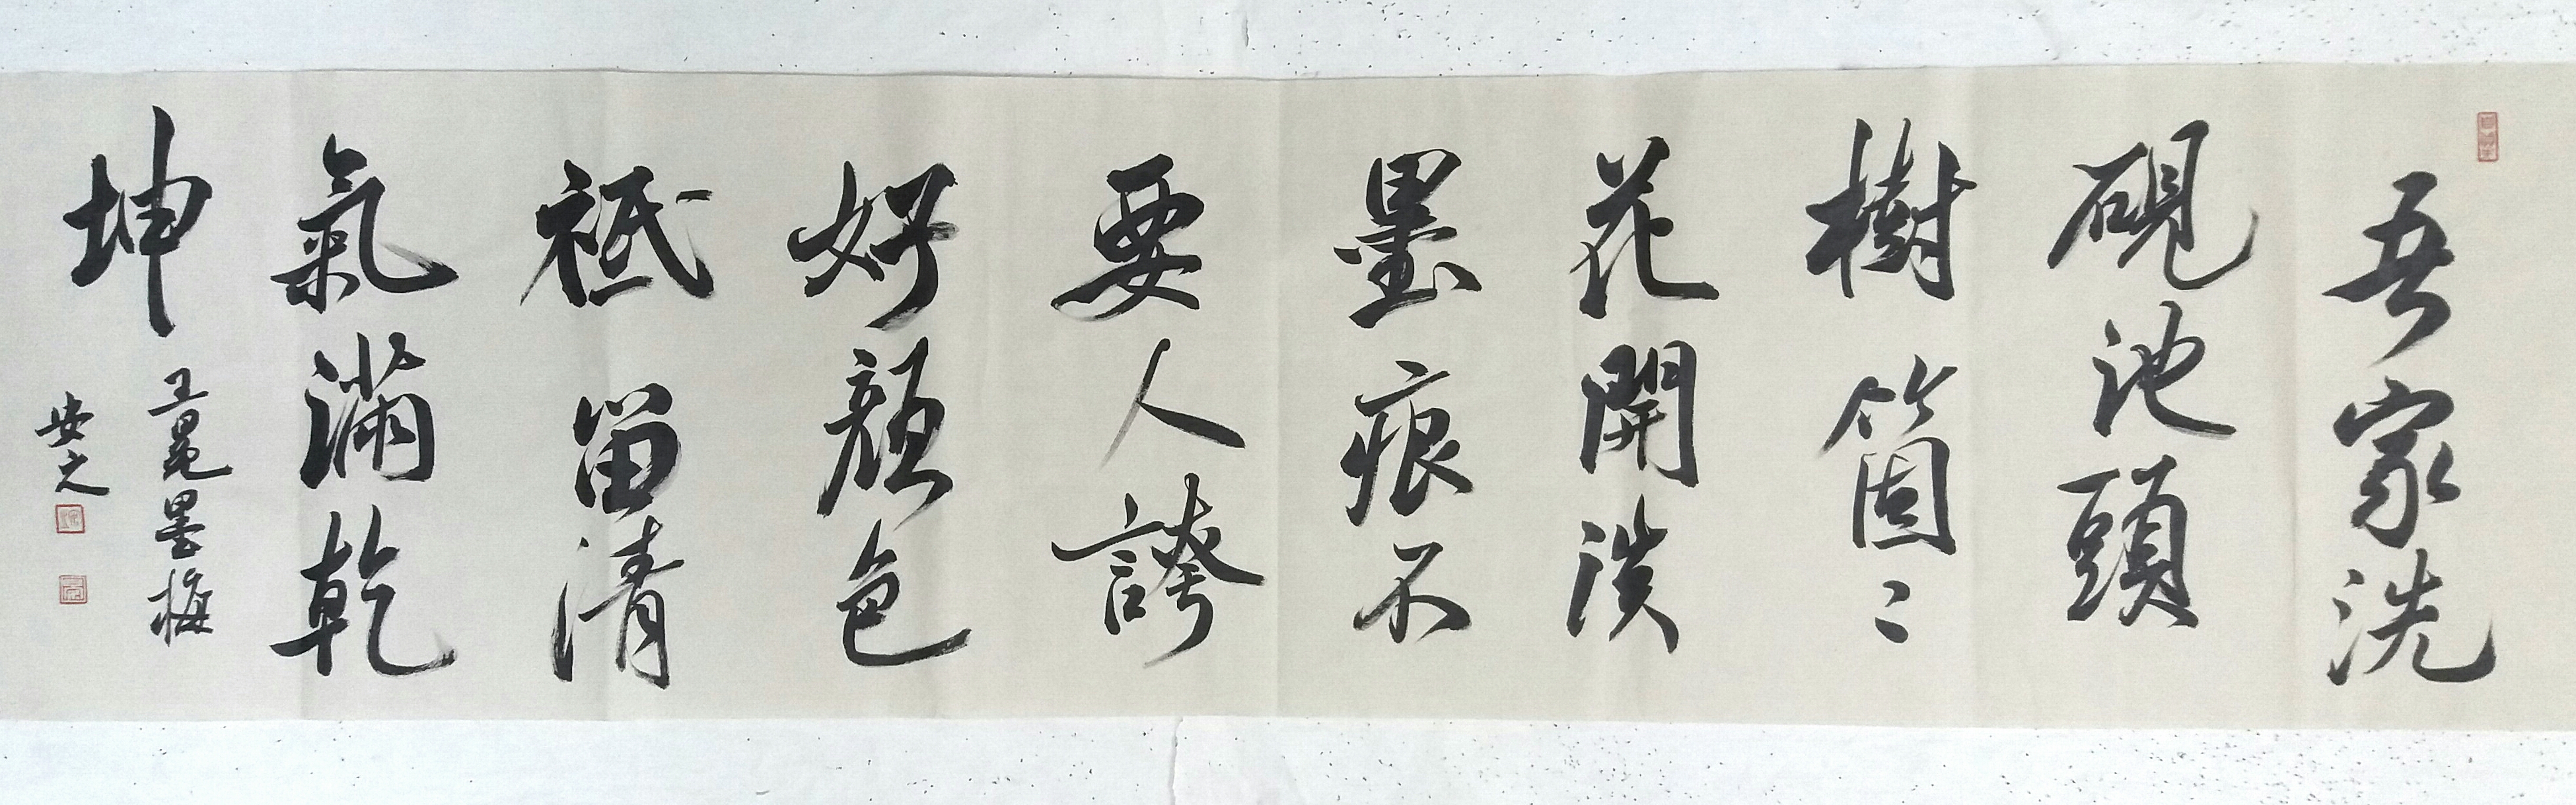 吾家洗
硯池頭
樹箇〻
花開淡
墨痕不
要人誇
好顔色
祗留清
氣滿乾
坤
王冕墨梅
安之